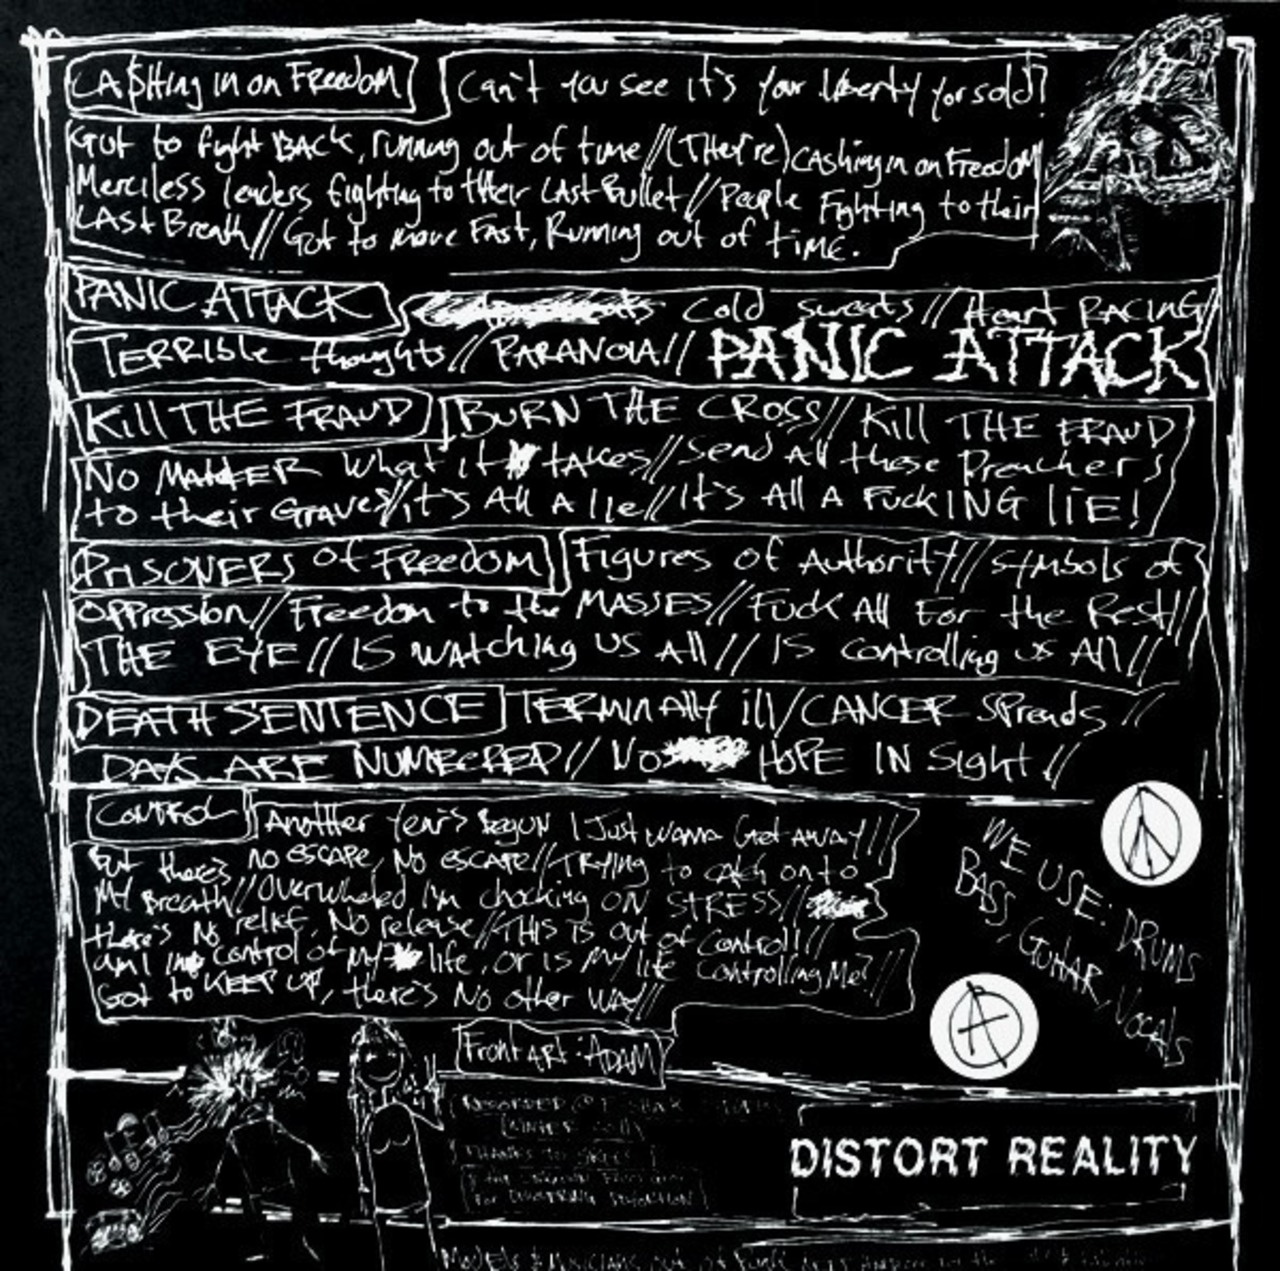 CA$Hing in on Freedom
Can't you see it's your liberty yor sold?
Got to fight BACK, running out of time // (THey're) CAshing in on Freedom
Merciless leaders fighting to tHeir LAst Bullet // People Fighting to their
LAst Breath // Got to move FAst, Running out of time.
PANIC ATTACK
Cold sweats // Heart RACING/
TERRIble thoughts // PARANOIA // PANIC ATTACK
Kill THE FRAUD
BURN THE CROSS // Kill THE FRAUD
NO MAttER what it tAkes // Send All these Preachers
to their Graves // it's All A lie // It's All A FuckING lIE!
PRISONERS of Freedom
Figures of Authority // Symbols of
oppression // Freedom to the MASSES // Fuck All For the Rest //
THE EYE // IS wAtching us All // IS Controlling us All //
DEATH SENTENCE
TERMINAlly ill / CANCER SPreads //
DAYS ARE NUMBERED // No HOPE IN Sight //
CONTROL
Another Year's Begun I Just wanna Get AwAy //
But there's no escape, No escape // TRYING to catch onto
My Breath // Overwhelmed I'm chocking ON STRESS //
there's No relief, No release // THIS IS out of Control! //
am I in control of my life, or is My life Controlling Me? //
Got to KEEP UP, there's No other WAy //
WE USE: DRUMS
BASS, GuitAR, VocAls
Front ARt: ADAM
DISTORT REALITY